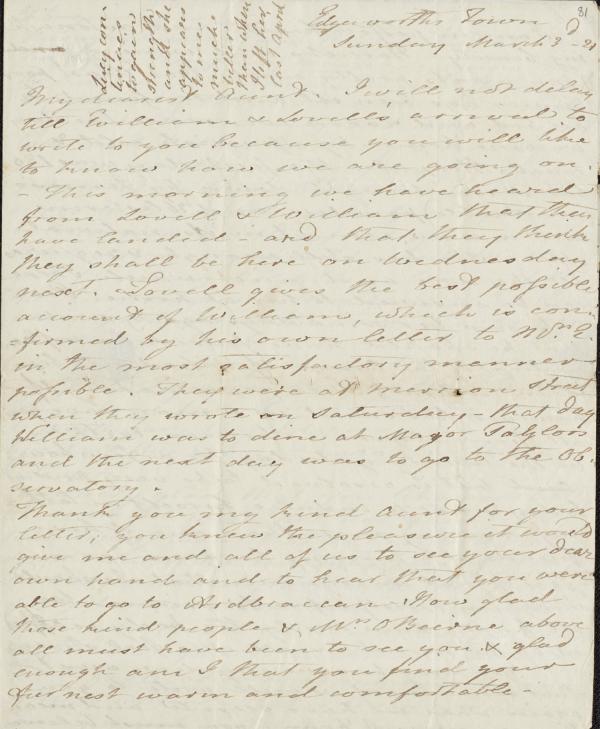 81
Edgeworths Town
Sunday March 3d - 21
Lucy con-
tinues
to gain
strength
and she
appears
to me
much
better
than when
I left her
last April
My dearest Aunt. I will not delay
till William & Lovell's arrival to
write to you because you will like
to know how we are going on.
- This morning we have heard
from Lovell & William that they
have landed - and that they think
they shall be here on Wednesday
next. Lovell gives the best possible
account of William, which is con-
=firmed by his own letter to Mrs. E.
in the most satisfactory manner
possible. They were at Merrion Street
when they wrote on Saturday - that day
William was to dine at Major Taylors
and the next day was to go to the Ob-
servatory.
Thank you my kind Aunt for your
letter; you knew the pleasure it would
give me and all of us to see your dear
own hand and to hear that you were
able to go to Ardbraccan. How glad
those kind people & Mrs OBeirne above
all must have been to see you & glad
enough am I that you find your
fur nest warm and comfortable -